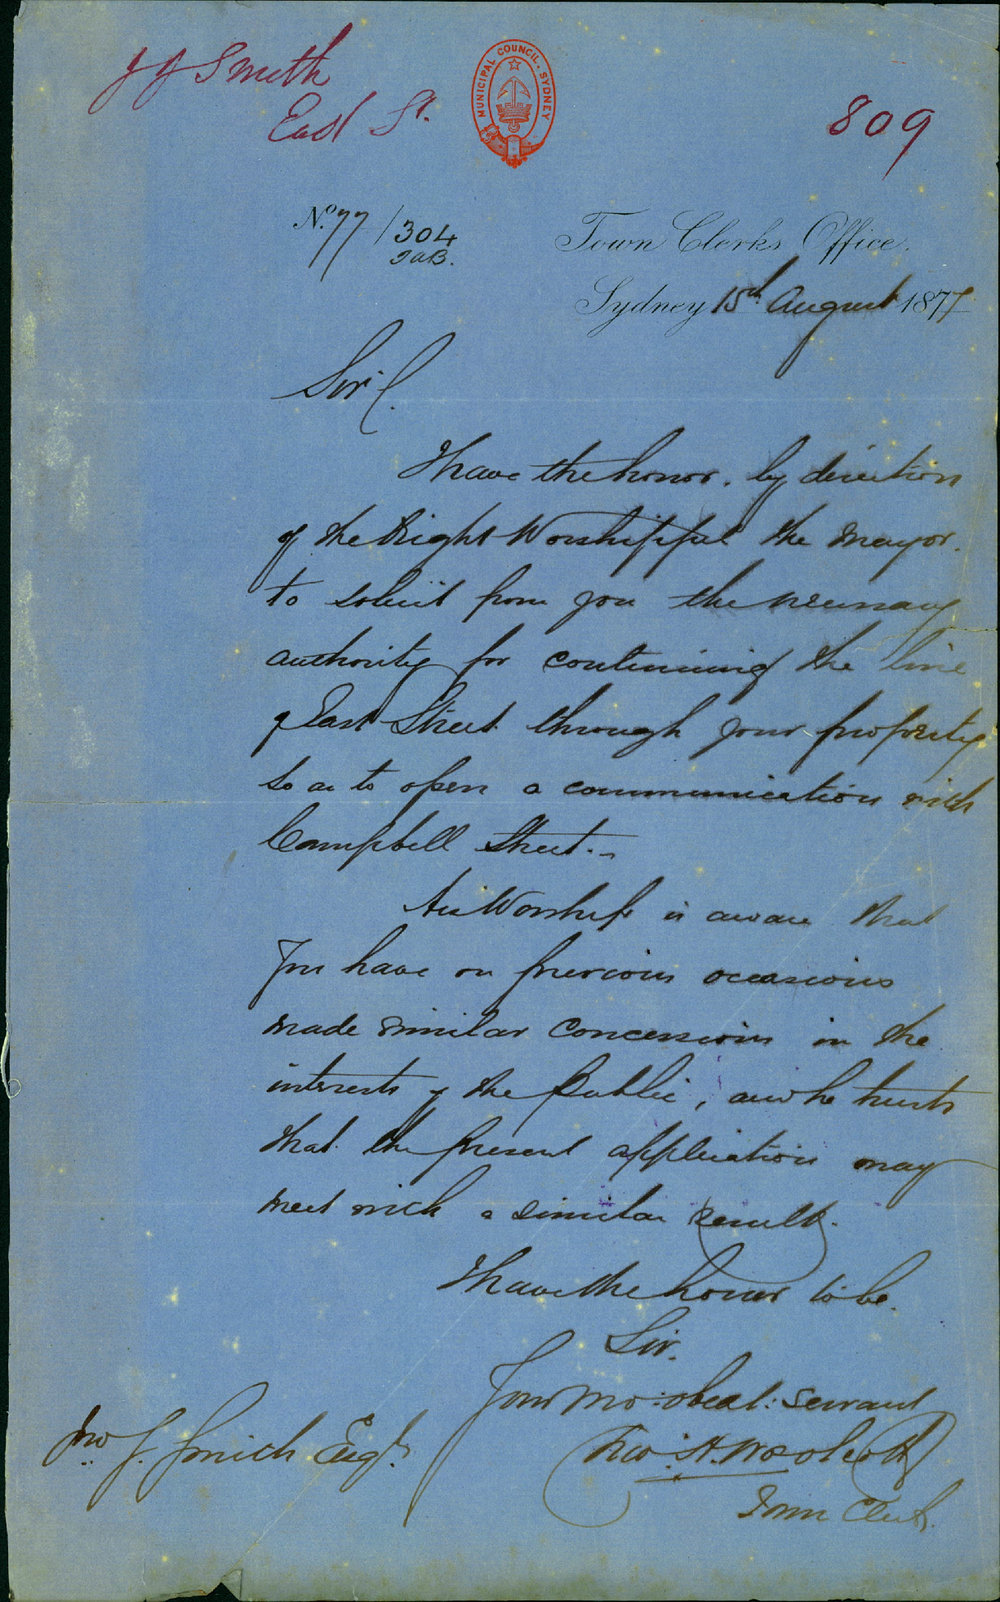 J J Smith
East St.
MUNICIPAL COUNCIL. SYDNEY
809
No. 77/304
Town Clerks Office.
Sydney 15th August 1877
Sir
I have the honor, by direction
of the Right Worshipful the Mayor.
to solicit from you the necessary
authority for continuing the line
of East Street through your property
so as to open a communication with
Campbell Street.
His Worship is aware that
you have on previous occasions
made similar concessions in the
interests of the Public, and he trusts
that the present application may
meet with a similar result.
I have the honor to be.
Sir.
Your mo: obedt: servant
Chas. H. Woolcott
Town Clerk.
Jno J. Smith Esqr.